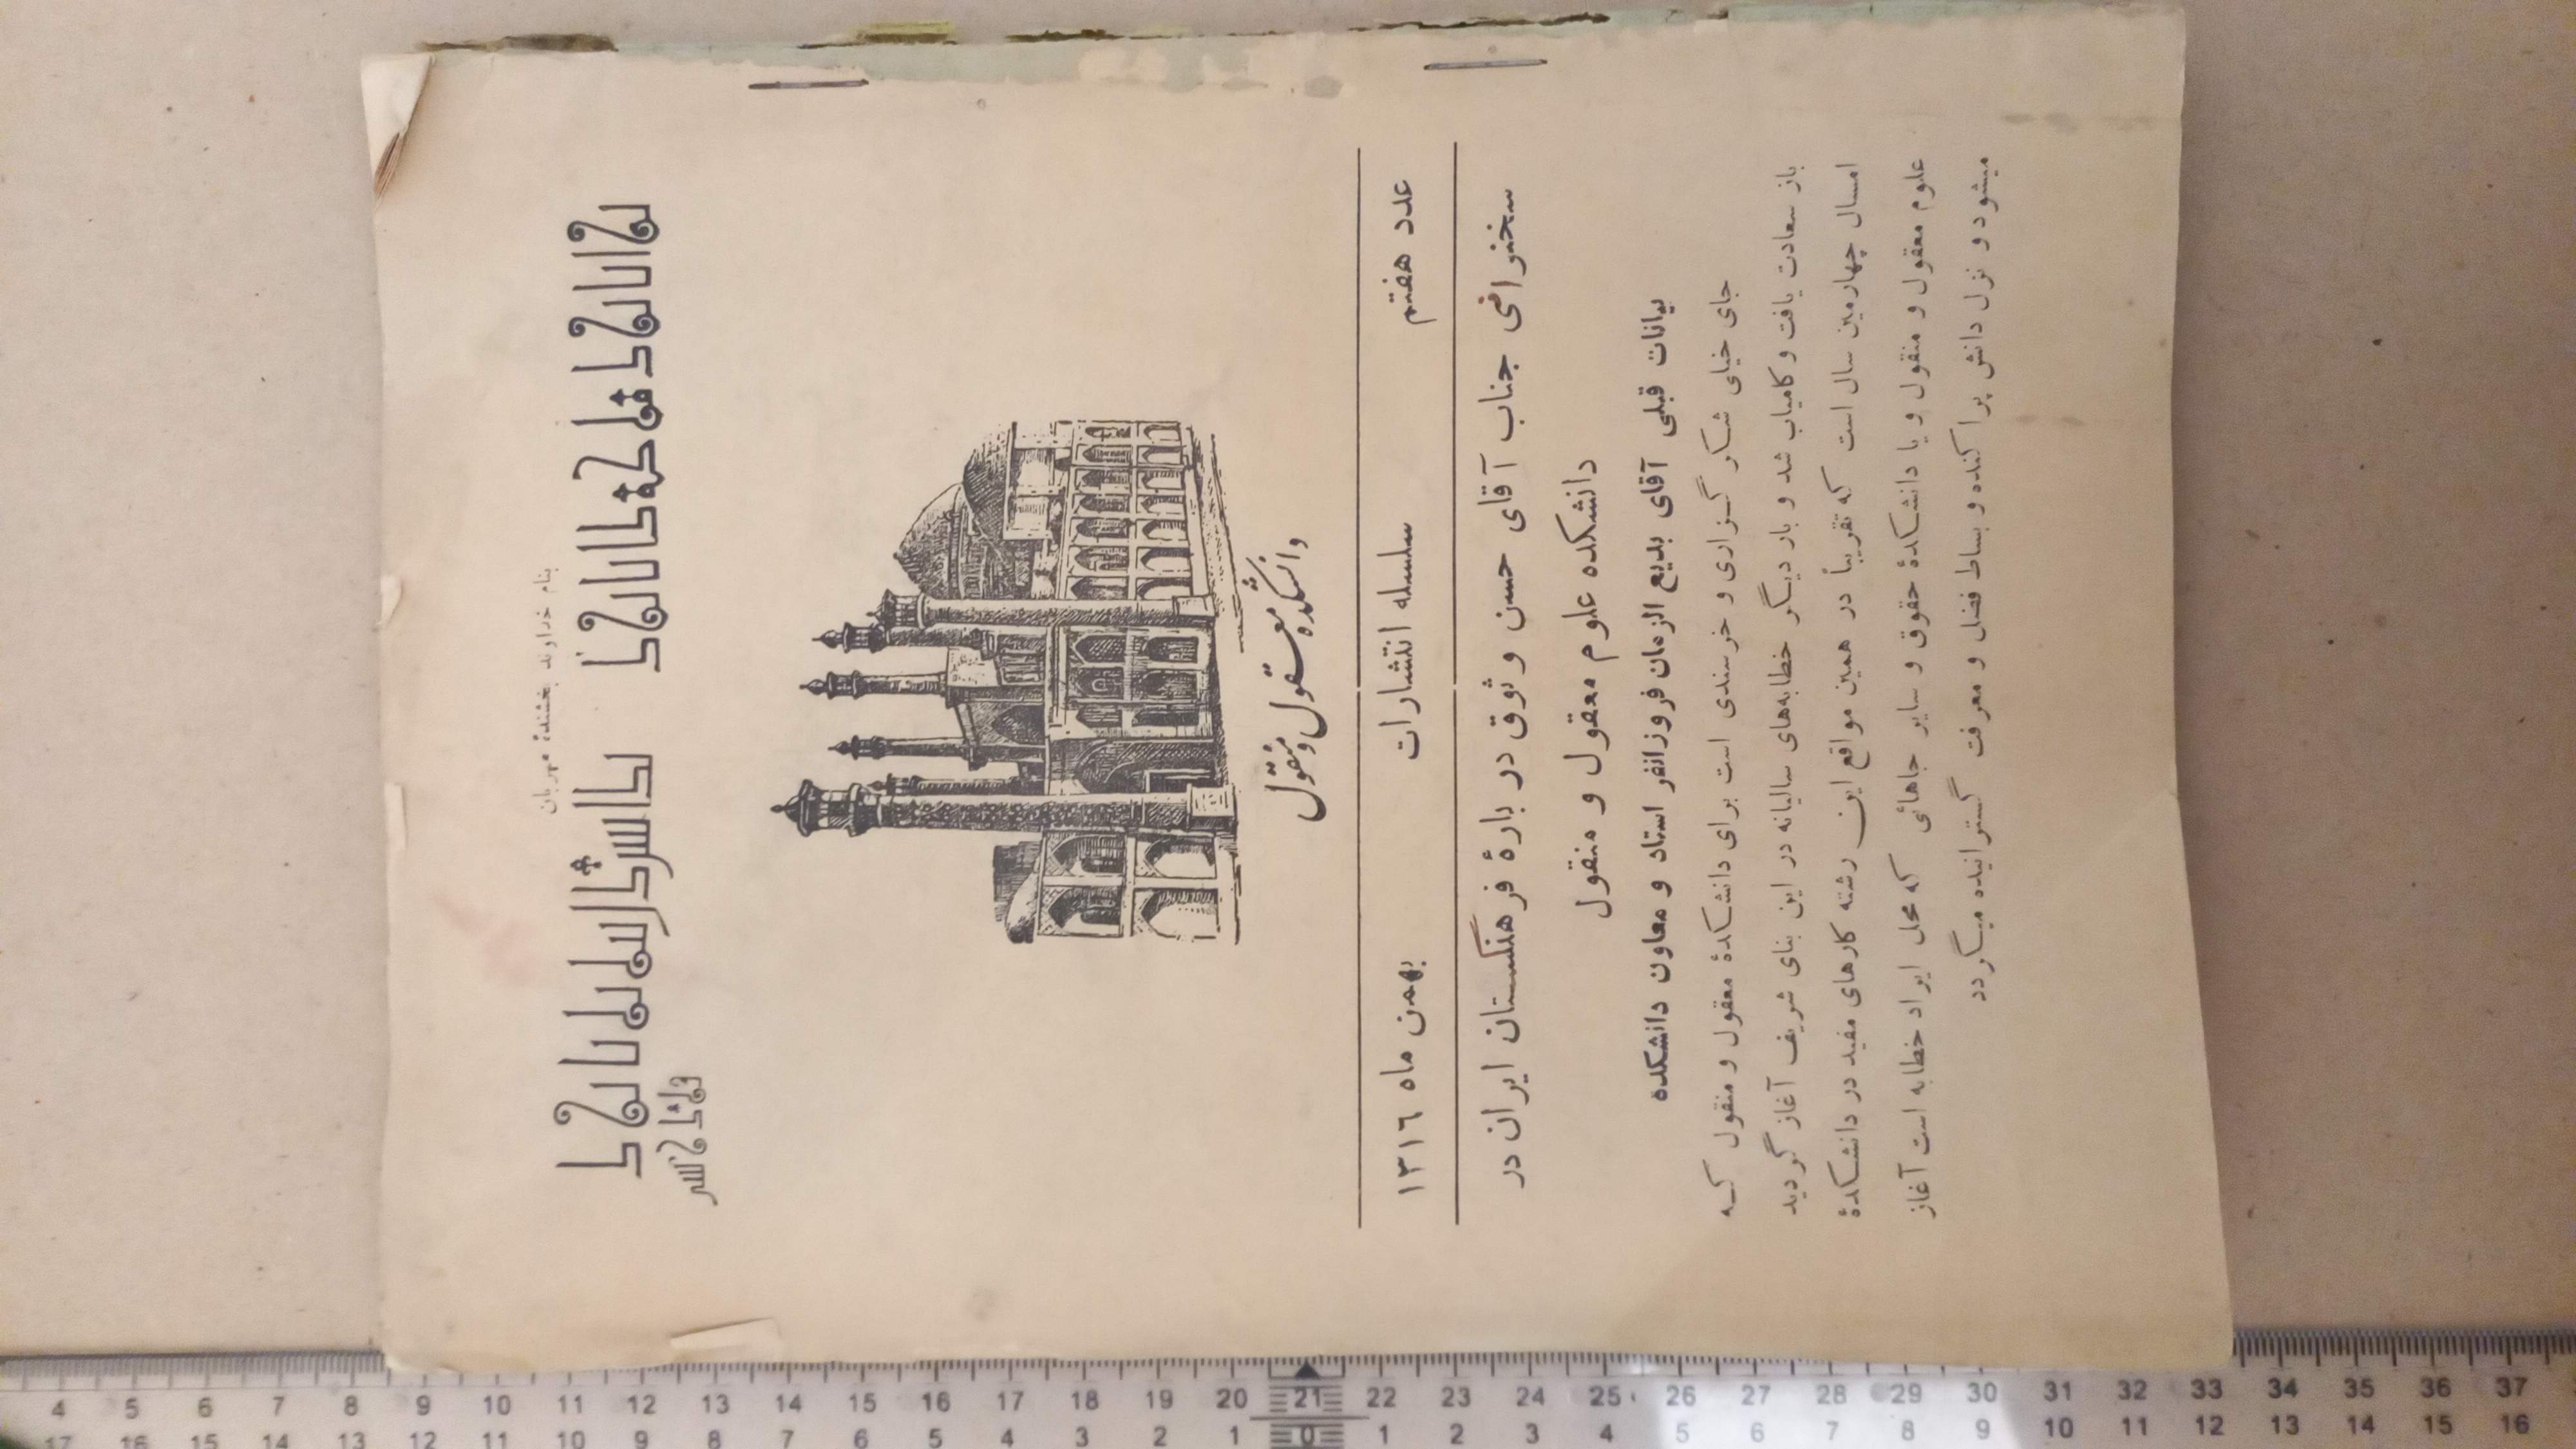 بنام خداوند بخشندهٔ مهربان
دانشکده معقول و منقول
عدد هفتم سلسله انتشارات بهمن ماه ۱۳۱۶
سخنرانی جناب آقای حسن وثوق در بارهٔ فرهنگستان ایران در
دانشکده علوم معقول و منقول
بیانات قبلی آقای بدیع الزمان فروزانفر استاد و معاون دانشکده
جای خیلی شکر گزاری و خرسندی است برای دانشکدهٔ معقول و منقول که
باز سعادت یافت و کامیاب شد و بار دیگر خطابه‌های سالیانه در این بنای شریف آغاز گردید
امسال چهارمین سال است که تقریباً در همین مواقع این رشته کارهای مفید در دانشکدهٔ
علوم معقول و منقول و یا دانشکدهٔ حقوق و سایر جاهائی که محل ایراد خطابه است آغاز
میشود و نزل دانش پراکنده و بساط فضل و معرفت گسترانیده میگردد
4 5 6 7 8 9 10 11 12 13 14 15 16 17 18 19 20 21 22 23 24 25 26 27 28 29 30 31 32 33 34 35 36 37
17 16 15 14 13 12 11 10 9 8 7 6 5 4 3 2 1 0 1 2 3 4 5 6 7 8 9 10 11 12 13 14 15 16